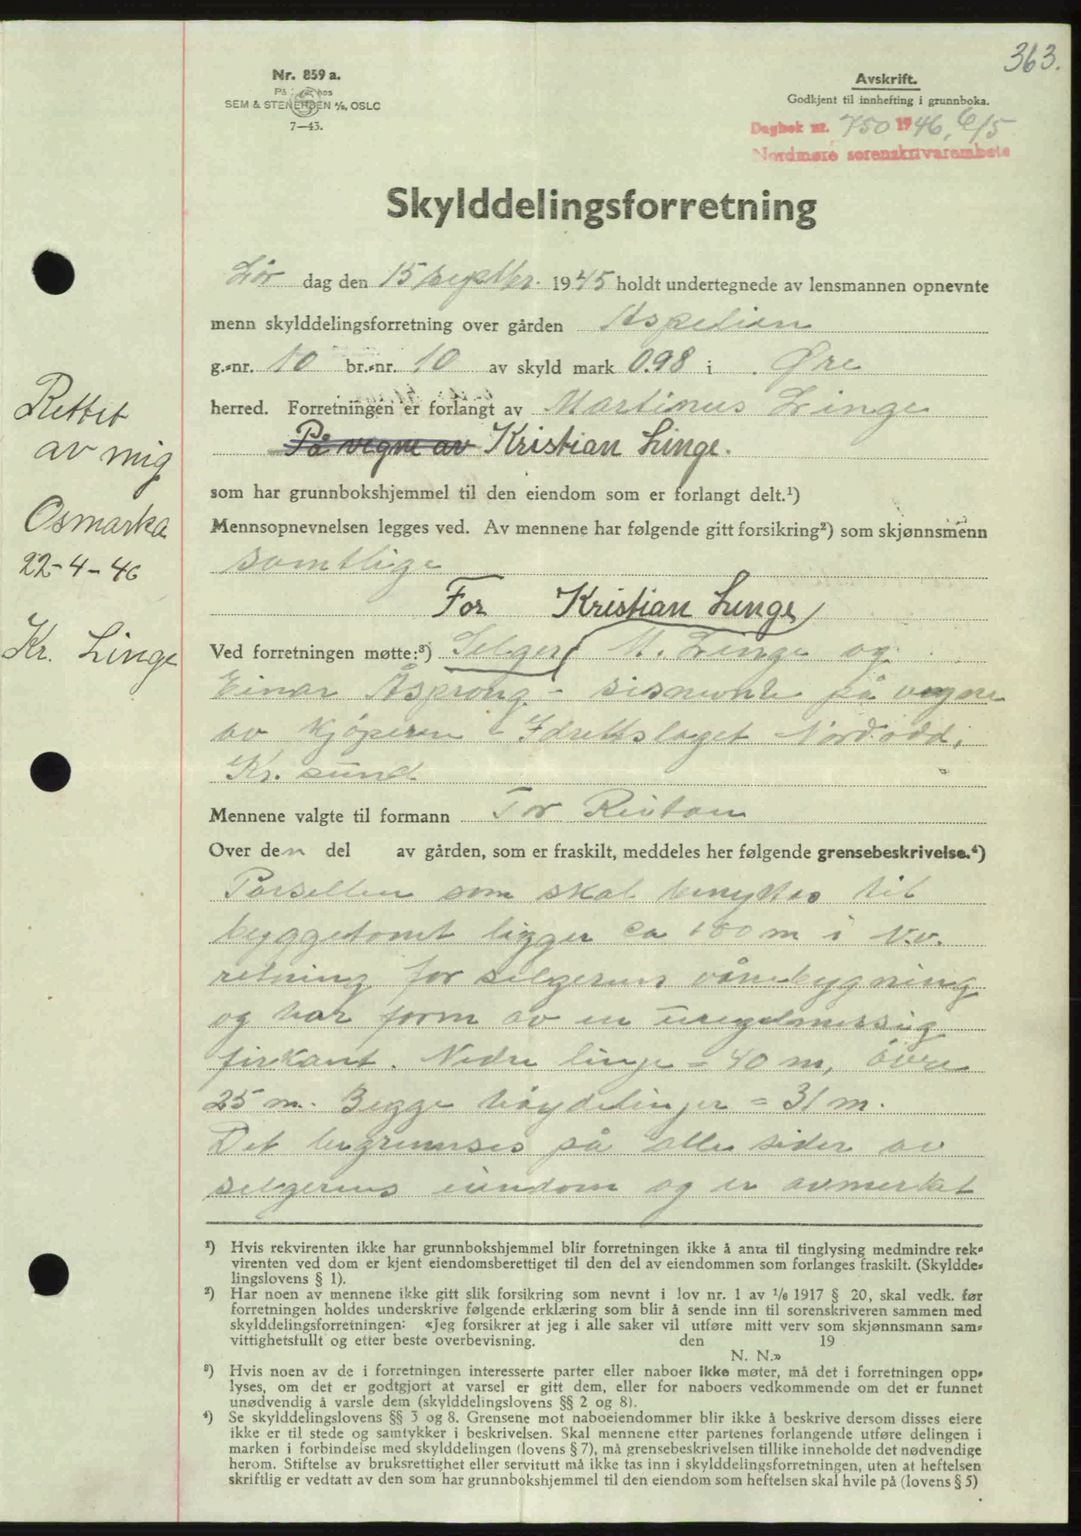 363.
Nr. 859 a.
På hos
SEM & STENERSEN A/S, OSLO
7—43.
Avskrift.
Godkjent til innhefting i grunnboka.
Dagbok nr. 750 1946, 6/5
Nordmøre sorenskrivarembete
Skylddelingsforretning
Lör dag den 15 septbr. 1945 holdt undertegnede av lensmannen opnevnte
menn skylddelingsforretning over gården
g.-nr. 10 br.-nr. 10 av skyld mark 0.98 i Øre
herred. Forretningen er forlangt av Martinus Linge
På vegne av Kristian Linge.
som har grunnbokshjemmel til den eiendom som er forlangt delt.¹)
Mennsopnevnelsen legges ved. Av mennene har følgende gitt forsikring²) som skjønnsmenn
samtlige
For Kristian Linge
Ved forretningen møtte:³) Selger M. Linge og
Einar Åsprong - sisnevnte på vegne
av kjöperen Idrettslaget Nordodd,
Kr. sund
Mennene valgte til formann Tor
Over den del av gården, som er fraskilt, meddeles her følgende grensebeskrivelse.⁴)
Parsellen som skal benyttes til
byggetomt ligger ca 100 m i N.v.
retning for selgerens vånebygning
og har form av en uregelmessig
firkant. Nedre linje = 40 m, övre
25 m. Begge höydelinjer = 31 m.
Det begrenses på alle sider av
selgerens eiendom og er avmerket
Rettet
av mig
Osmarka
22-4-46
Kr. Linge
¹) Hvis rekvirenten ikke har grunnbokshjemmel blir forretningen ikke å anta til tinglysing medmindre rek-
virenten ved dom er kjent eiendomsberettiget til den del av eiendommen som forlanges fraskilt. (Skyldde-
lingslovens § 1).
²) Har noen av mennene ikke gitt slik forsikring som nevnt i lov nr. 1 av 1/6 1917 § 20, skal vedk. før
forretningen holdes underskrive følgende erklæring som blir å sende inn til sorenskriveren sammen med
skylddelingsforretningen: «Jeg forsikrer at jeg i alle saker vil utføre mitt verv som skjønnsmann sam-
vittighetsfullt og etter beste overbevisning. den 19
N. N.»
³) Hvis noen av de i forretningen interesserte parter eller naboer ikke møter, må det i forretningen opp-
lyses, om det er godtgjort at varsel er gitt dem, eller for naboers vedkommende om det er funnet
unødvendig å varsle dem (skylddelingslovens §§ 2 og 8).
⁴) Se skylddelingslovens §§ 3 og 8. Grensene mot naboeiendommer blir ikke å beskrive dersom disses eiere
ikke er til stede og samtykker i beskrivelsen. Skal mennene etter partenes forlangende utføre delingen i
marken i forbindelse med skylddelingen (lovens § 7), må grensebeskrivelsen tillike inneholde det nødvendige
herom. Stiftelse av bruksrettighet eller servitutt må ikke tas inn i skylddelingsforretningen, uten at heftelsen
skriftlig er vedtatt av den som har grunnbokshjemmel til den eiendom som heftelsen skal hvile på (lovens § 5)